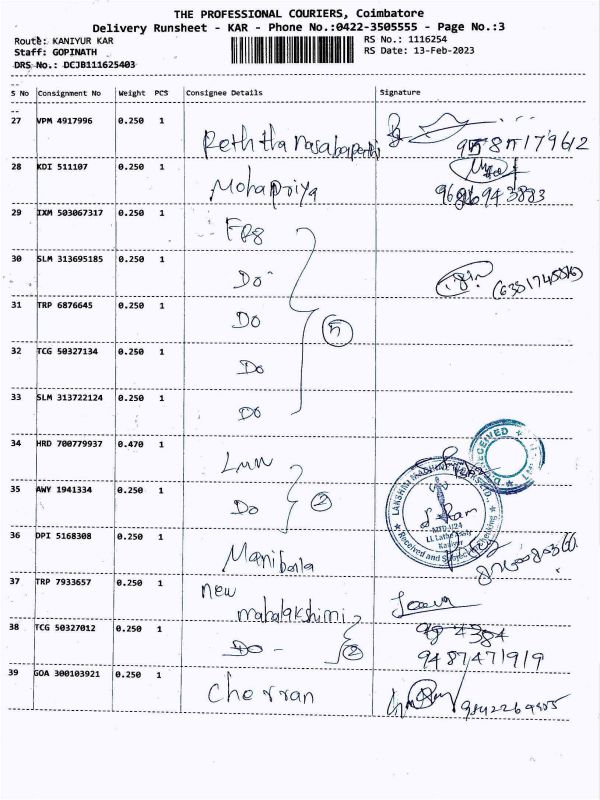 THE PROFESSIONAL COURIERS, Coimbatore
Delivery Runsheet - KAR - Phone No.:0422-3505555 - Page No.:3
Route: KANIYUR KAR
RS No.: 1116254
Staff: GOPINATH
RS Date: 13-Feb-2023
DRS No.: DCJB111625403
S No Consignment No Weight PCS Consignee Details Signature
27 VPM 4917996 0.250 1
28 KDI 511107 0.250 1 Mohapriya
29 IXM 503067317 0.250 1
30 SLM 313695185 0.250 1 Do
31 TRP 6876645 0.250 1 Do
5
32 TCG 50327134 0.250 1 Do
33 SLM 313722124 0.250 1 Do
34 HRD 700779937 0.470 1 Lmw
RECEIVED
35 AWY 1941334 0.250 1 Do 2
36 DPI 5168308 0.250 1 Manibala
37 TRP 7933657 0.250 1 new
mahalakshmi
38 TCG 50327012 0.250 1 Do - 2
9487471919
39 GOA 300103921 0.250 1 Cherran